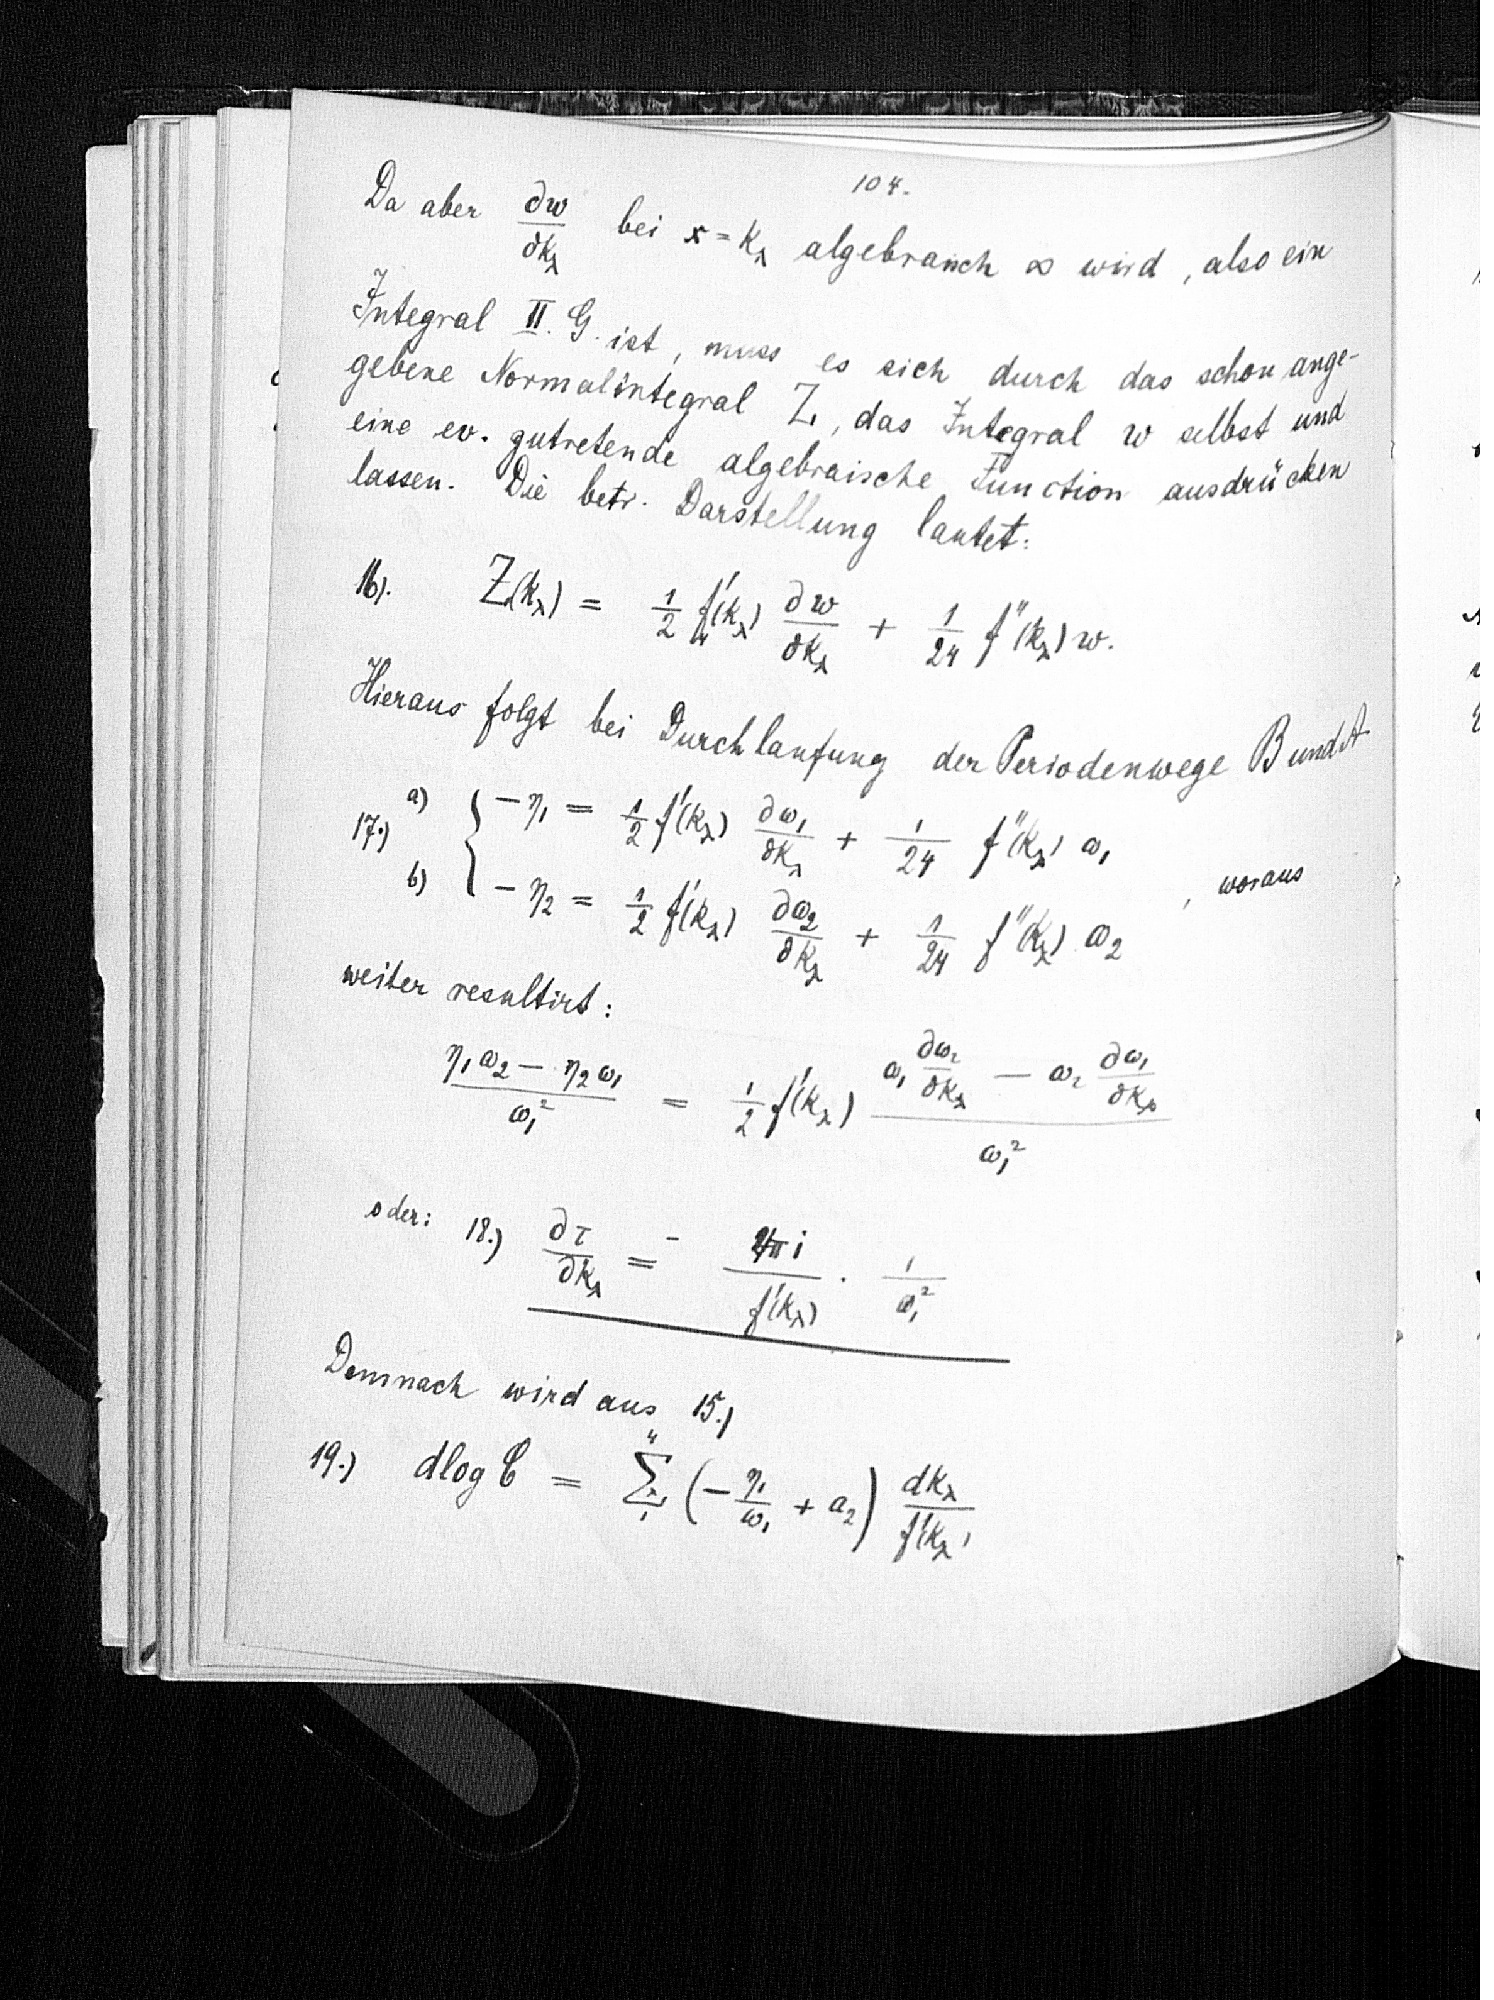 104.
Da aber ∂w/∂k_λ bei x = k_λ algebraisch ∞ wird, also ein
Integral II. G. ist, muss es sich durch das schon ange-
gebene Normalintegral Z, das Integral w selbst und
eine ev. zutretende algebraische Function ausdrücken
lassen. Die betr. Darstellung lautet:
16). Z(k_λ) = 1/2 f'(k_λ) ∂w/∂k_λ + 1/24 f''(k_λ) w.
Hieraus folgt bei Durchlaufung der Periodenwege B und A
17.) a) { −η₁ = 1/2 f'(k_λ) ∂ω₁/∂k_λ + 1/24 f''(k_λ) ω₁
b) − η₂ = 1/2 f'(k_λ) ∂ω₂/∂k_λ + 1/24 f''(k_λ) ω₂ , woraus
weiter resultirt:
(η₁ω₂ − η₂ω₁)/ω₁² = 1/2 f'(k_λ) (ω₁ ∂ω₂/∂k_λ − ω₂ ∂ω₁/∂k_λ)/ω₁²
oder: 18.) ∂τ/∂k_λ = − πi/f'(k_λ) · 1/ω₁²
Demnach wird aus 15.)
19.) dlog C = Σ (−η₁/ω₁ + a₂) dk_λ/f'(k_λ)